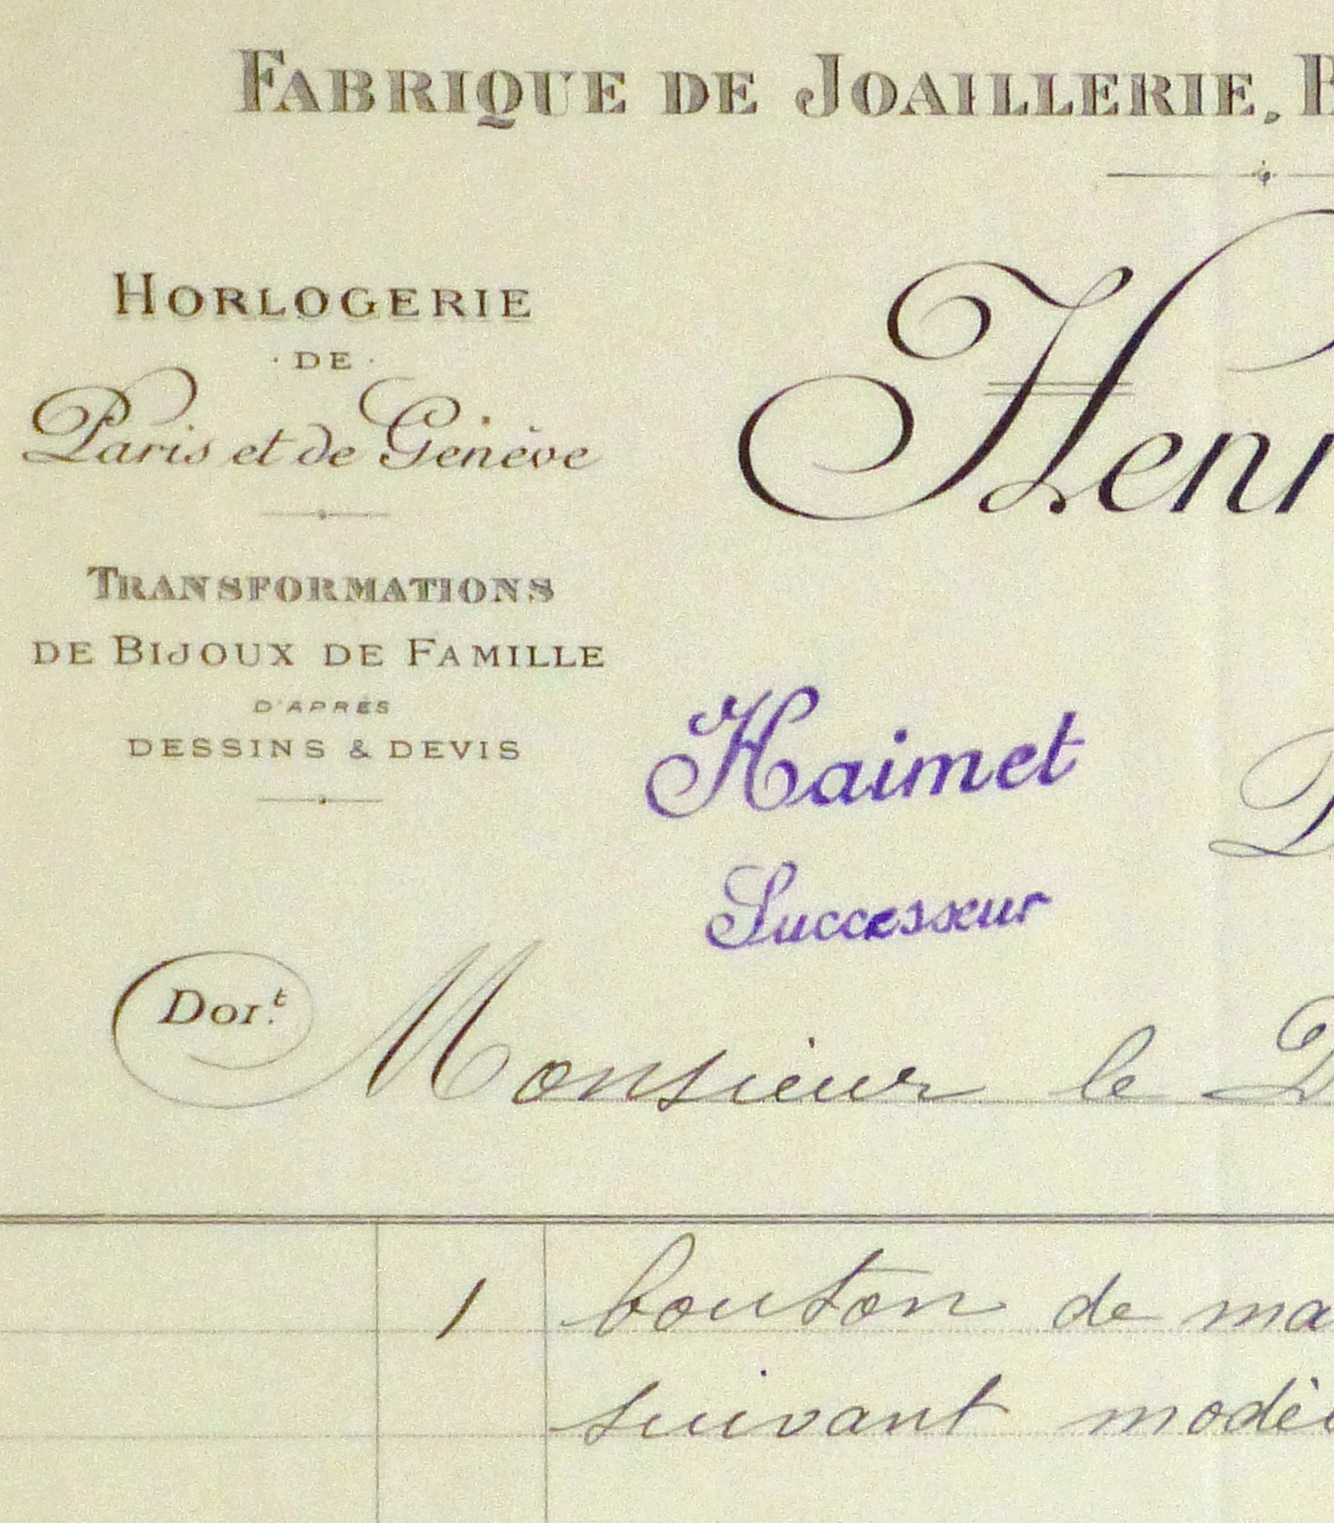 FABRIQUE DE JOAILLERIE,
HORLOGERIE
· DE ·
Paris et de Genève
TRANSFORMATIONS
DE BIJOUX DE FAMILLE
D'APRÈS
DESSINS & DEVIS
Haimet
Successeur
Doit. Monsieur le
1 bouton de
suivant